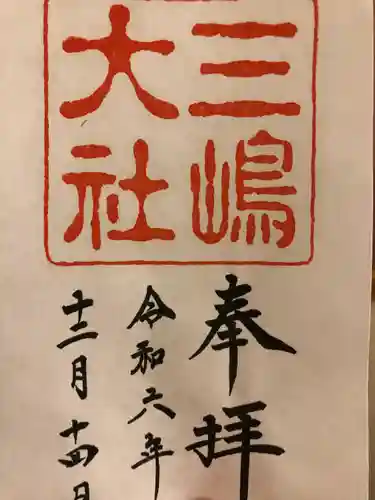 三嶋
大社
奉拝
令和六年
十二月十四日